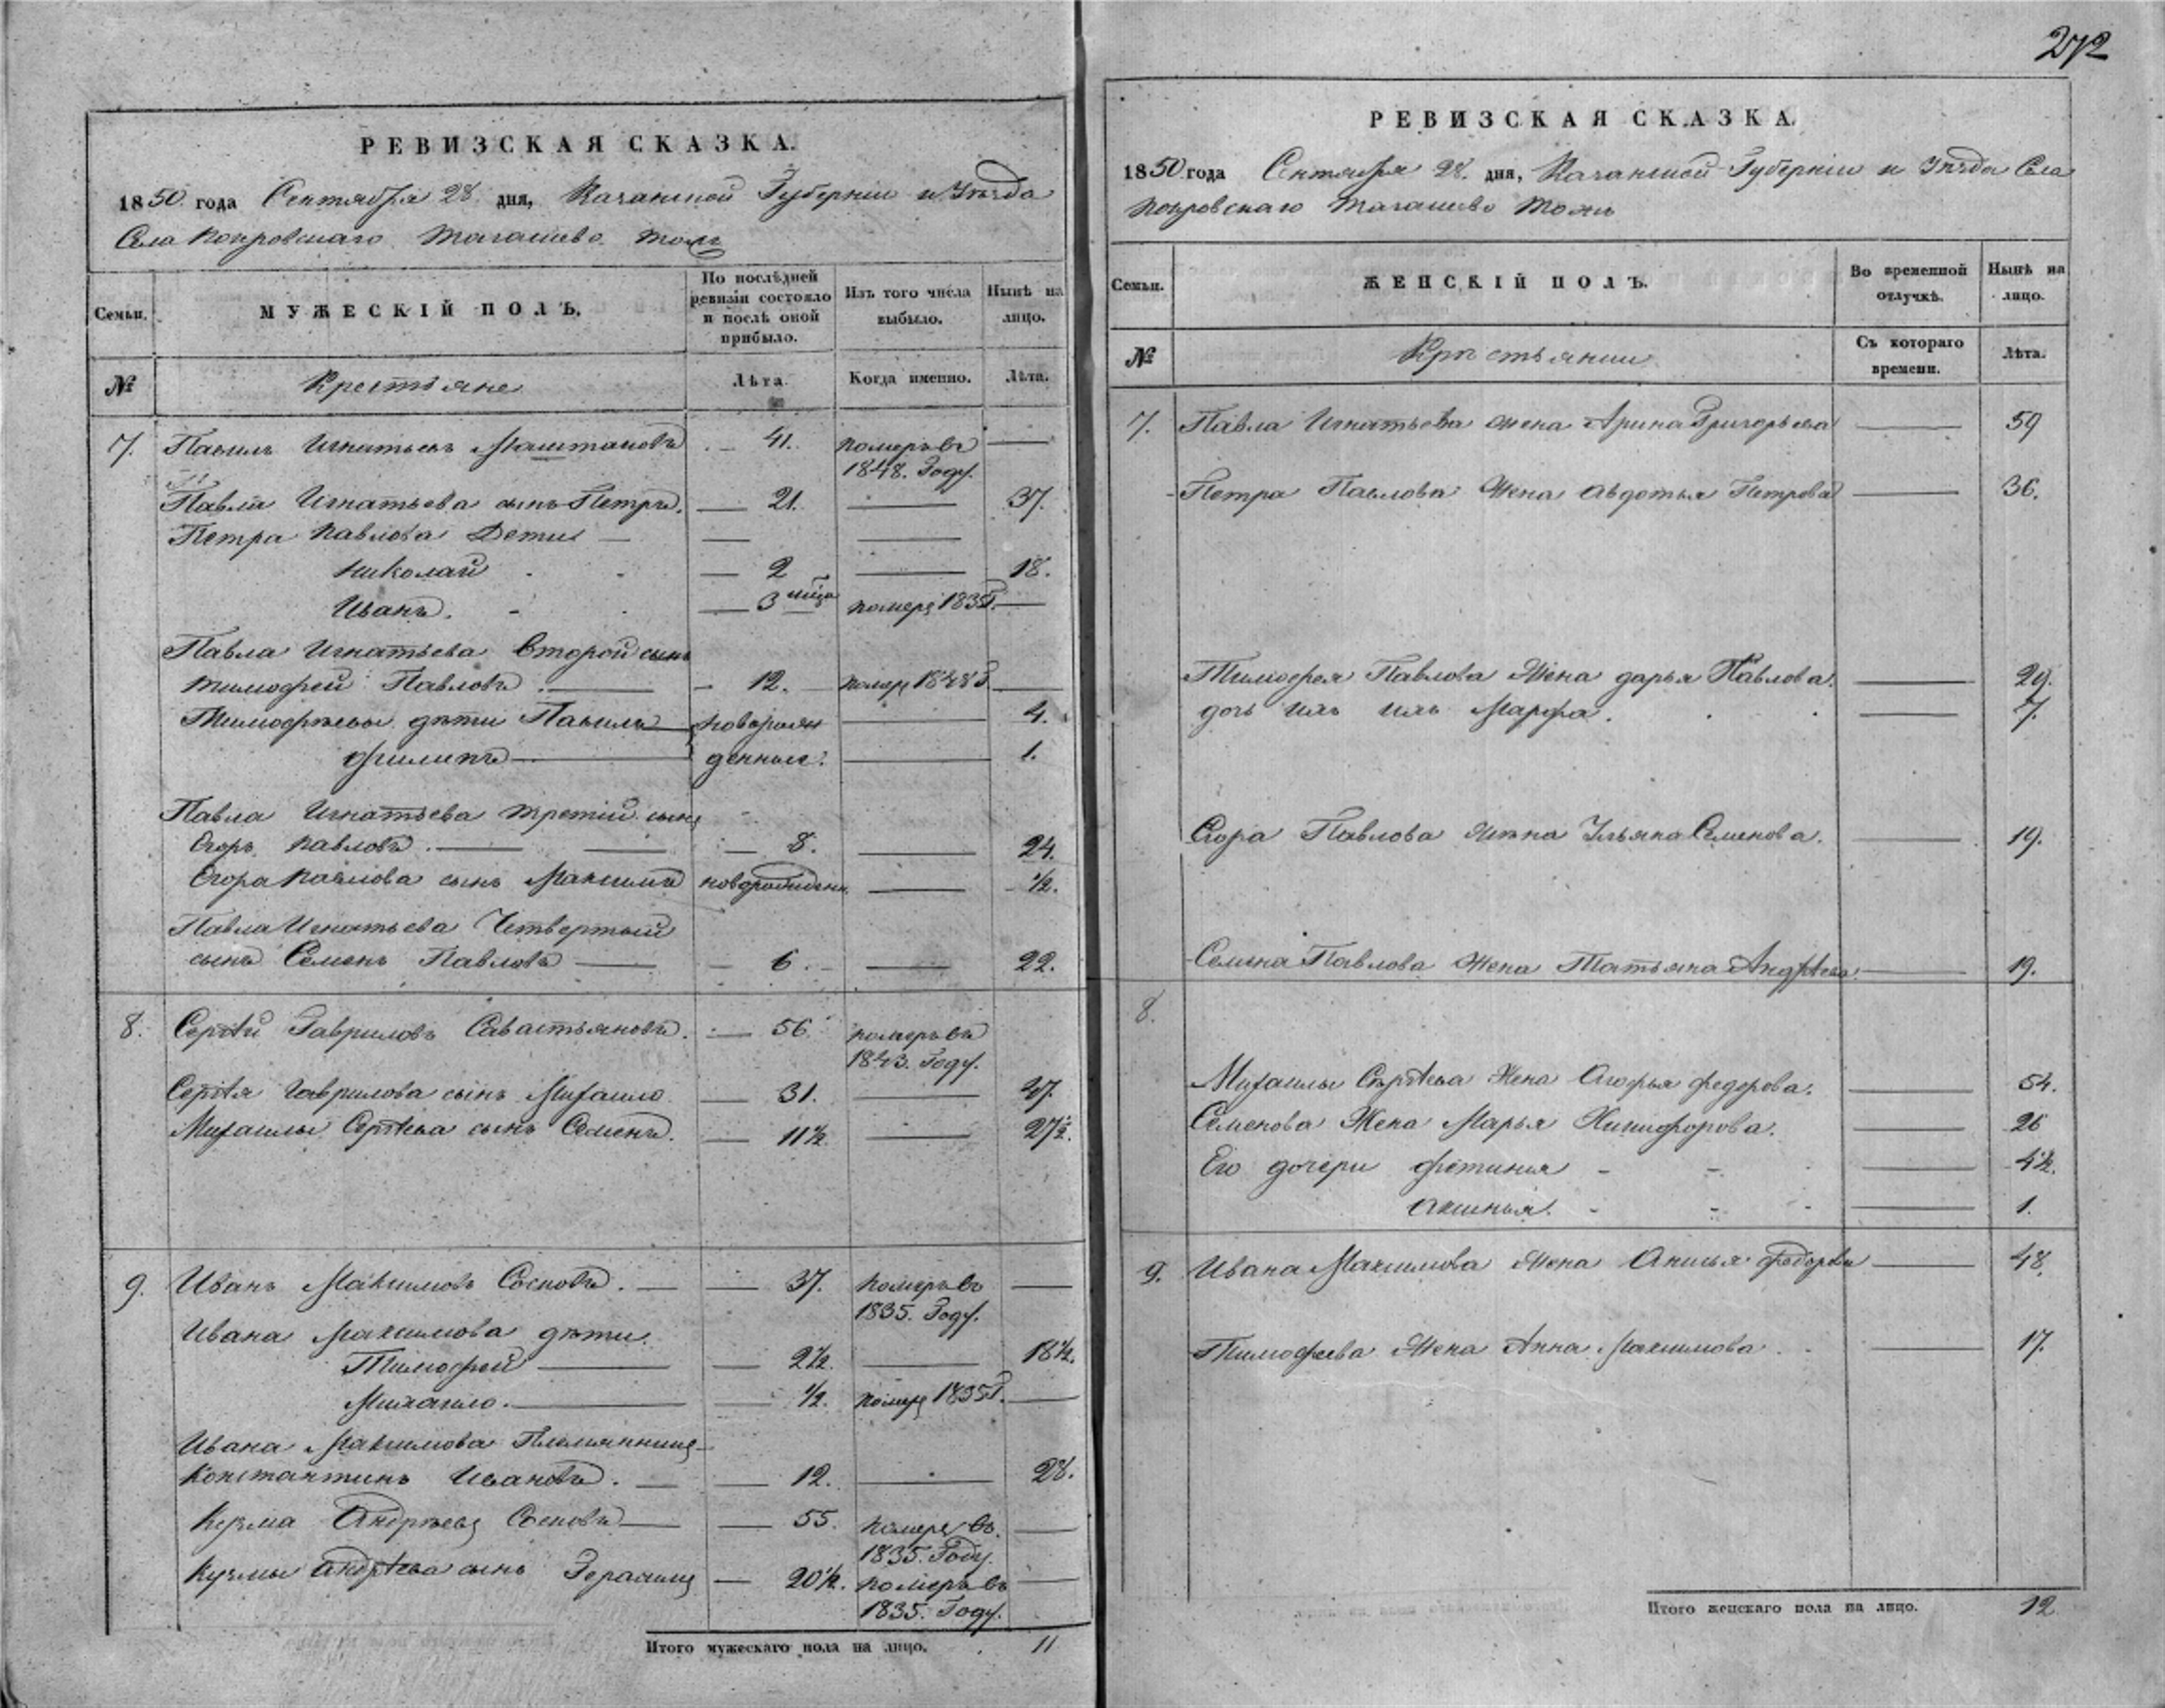 272
РЕВИЗСКАЯ СКАЗКА.
1850 года Сентября 28 дня, Казанской Губерніи и Уѣзда
Села Покровскаго Тагашево тожъ
Семьи. МУЖЕСКІЙ ПОЛЪ. По послѣдней ревизіи состояло и послѣ оной прибыло. Изъ того числа выбыло. Нынѣ на лицо.
№ Крестьяне Лѣта. Когда именно. Лѣта.
7. Павилъ Игнатьевъ Маштановъ — 41. померъ въ 1848. Году. —
Павла Игнатьева сынъ Петръ. — 21. — 37.
Петра Павлова Дети — — —
Николай — 2 — 18.
Иванъ. — 3 мѣся померъ 1835 Г. —
Павла Игнатьева Второй сынъ
Тимофей Павловъ. — 12. — помер 1848 Г —
Тимофѣевы дѣти Павилъ новорожденные. — 4.
Филипъ — — 1.
Павла Игнатьева третій сынъ
Егоръ Павловъ. — 8. — 24.
Егора Павлова сынъ Максимъ новорожденн. — 1/2.
Павла Игнатьева Четвертый
сынъ Семенъ Павловъ — 6. — 22.
8. Сергѣй Гавриловъ Савастьяновъ. — 56. померъ въ 1843. Году.
Сергѣя Гаврилова сынъ Михаило — 31. — 47.
Михаилы Сергѣева сынъ Семенъ. — 11 1/2 — 27 1/2.
9. Иванъ Максимовъ Сосновъ. — 37. померъ въ 1835. Году. —
Ивана Максимова дѣти.
Тимофей — 2 1/2. — 18 1/2.
Михаило. — 1/2. помер 1835 Г. —
Ивана Максимова Племянникъ
Константинъ Ивановъ. — 12. — 28.
Кузма Андрѣевъ Сосновъ — 55. померъ въ 1835. Году. —
Кузмы Андрѣева сынъ Герасимъ — 20 1/2. померъ въ 1835. Году. —
Итого мужескаго пола на лицо. 11
РЕВИЗСКАЯ СКАЗКА.
1850 года Сентября 28. дня, Казанской Губерніи и Уѣзда Села
Покровскаго Тагашево тожъ
Семьи. ЖЕНСКІЙ ПОЛЪ. Во временной отлучкѣ. Нынѣ на лицо.
№ Съ котораго времени. Лѣта.
7. Павла Игнатьева жена Арина Григорьева — 59
Петра Павлова Жена Авдотья Петрова — 36.
Тимофея Павлова Жена дарья Павлова. — 29.
дочь Марфа. — 7.
Егора Павлова Жена Ульяна Семенова. — 19.
Семена Павлова Жена Татьяна Андрѣева. — 19.
8.
Михаилы Сергѣева Жена Агофья федорова. — 54.
Семенова Жена Марья Никифорова. — 26
Его дочери фетинья — 4 1/2.
Аксинья. — 1.
9. Ивана Максимова Жена Анисья федорова — 48.
Тимофеева Жена Анна Максимова — 17.
Итого женскаго пола на лицо. 12